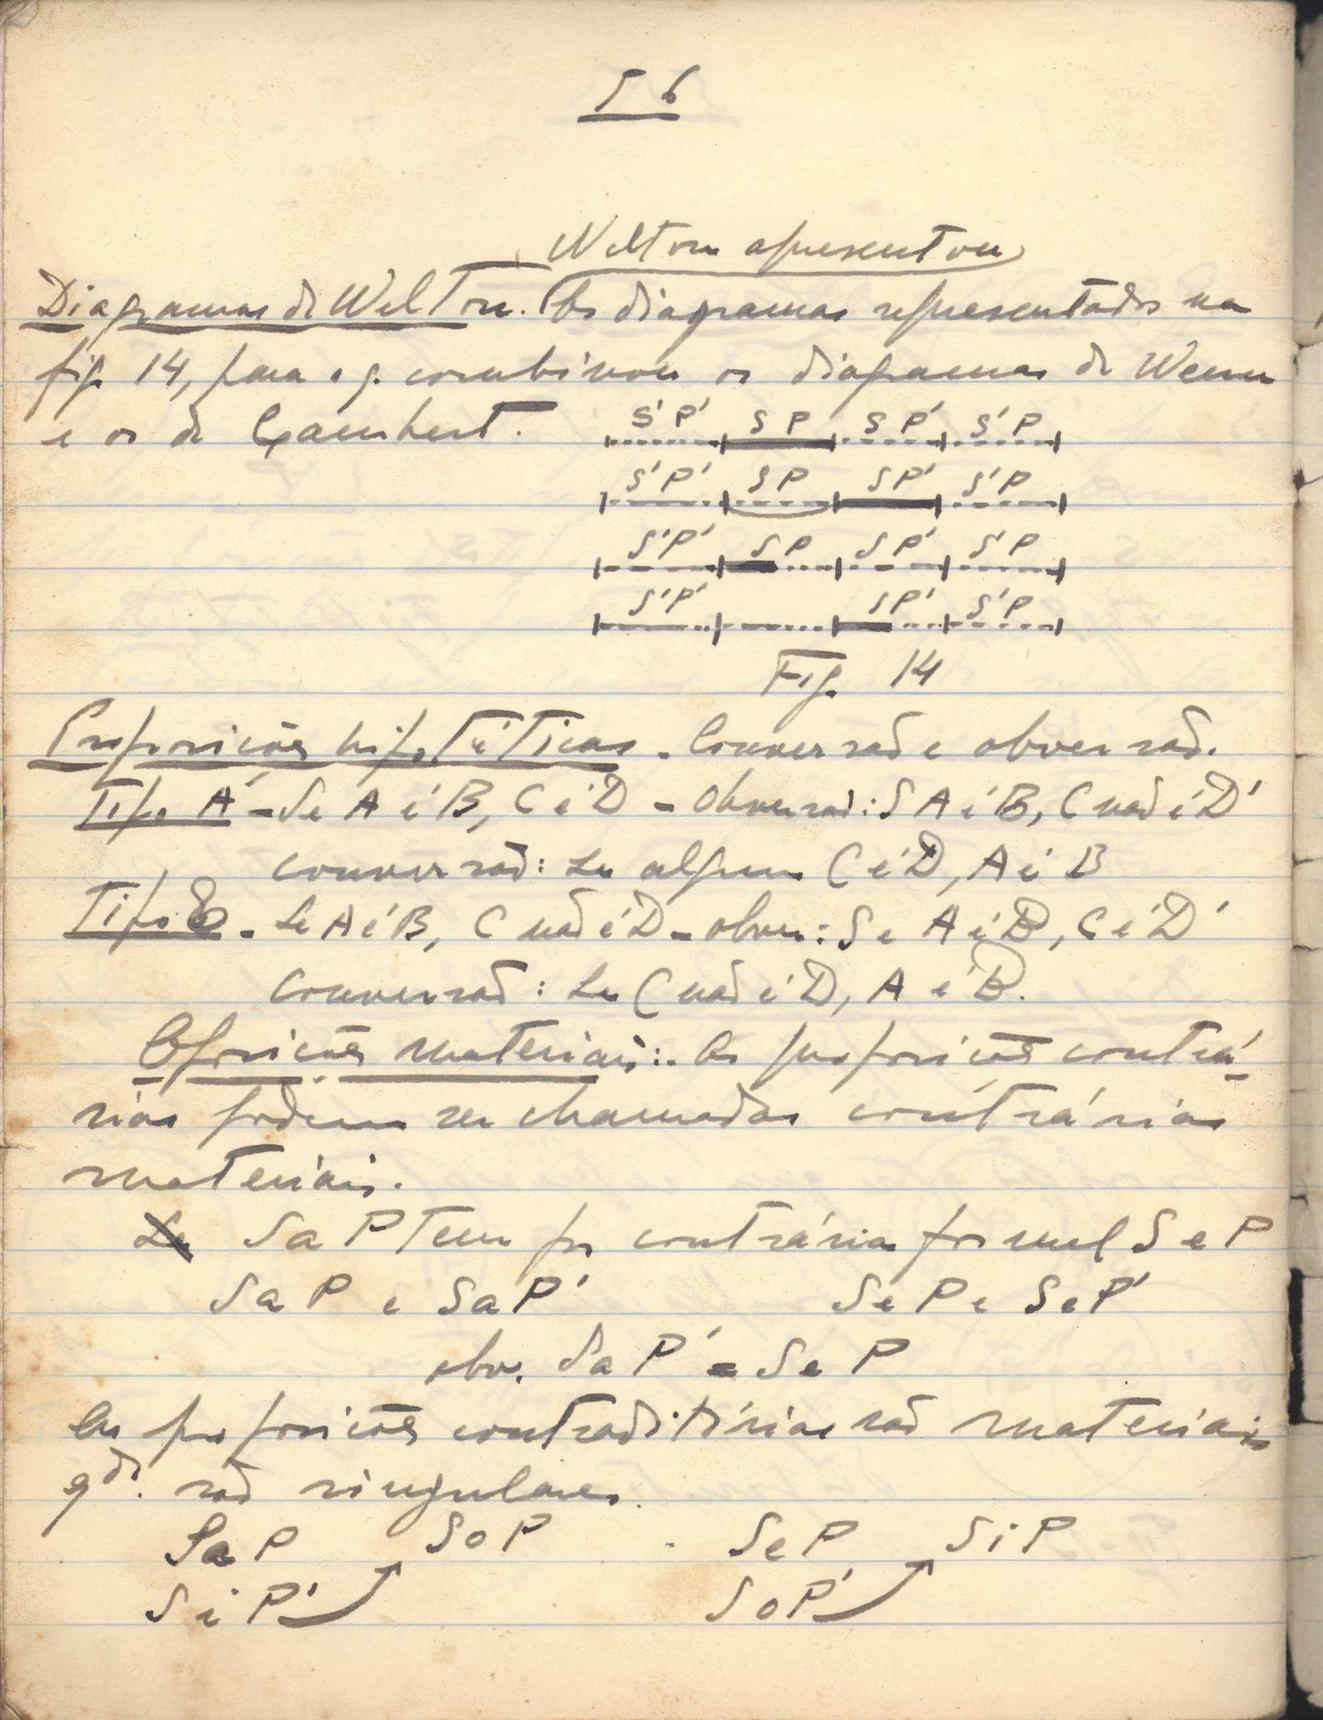 56
Welton apresentou
Diagramas de Welton. Os diagramas representados na
fig. 14, para o q. combinou os diagramas de Wenn
e os de Lambert.
S'P' SP SP' S'P
S'P' SP SP' S'P
S'P' SP SP' S'P
S'P' SP' S'P
Fig. 14
Proposições hipotéticas - Conversão e obversão.
Tipo A - Se A é B, C é D - Obversão: S A é B, C não é D'
conversão: Se algum C é D, A é B
Tipo E - Se A é B, C não é D - obver: Se A é B, C é D'
Conversão: Se C não é D, A é B.
Oposições materiais: As proposições contrá-
rias podem ser chamadas contrárias
materiais.
Se SaP tem por contrária formal SeP
SaP e SaP' SeP e SeP'
obv. SaP' = SeP
As proposições contraditórias são materiais
qdo. são singulares.
SaP SoP SeP SiP
SiP' SoP'